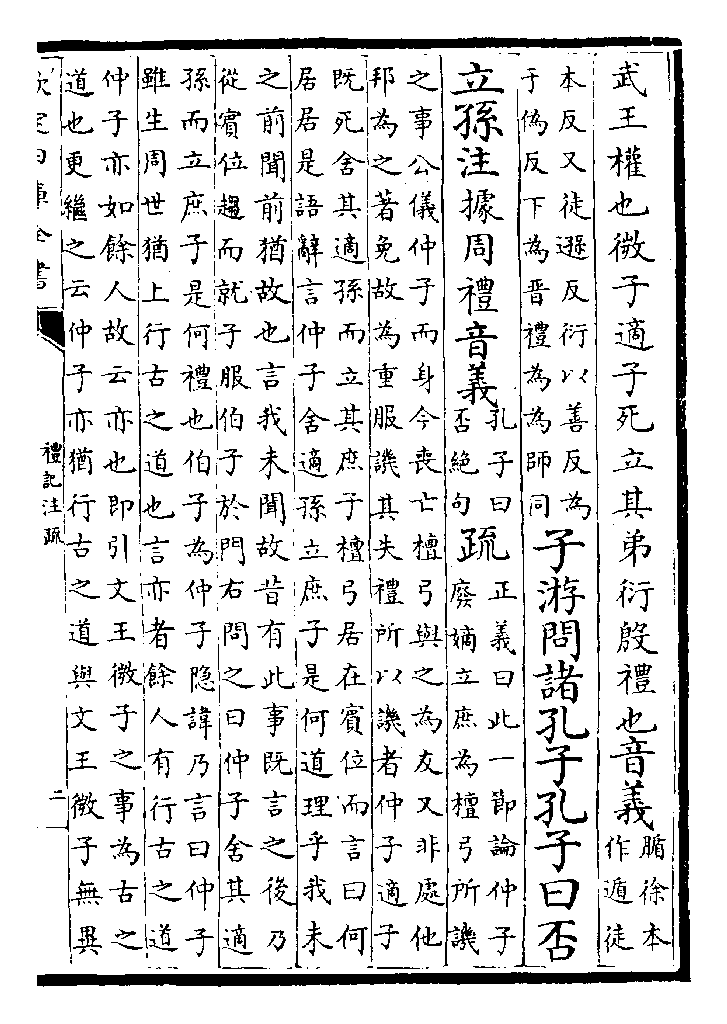 武王權也微子適子死立其弟衍殷禮也音義
腯徐本
作遁徒
本反又徒遜反衍以善反為
于偽反下為晉禮為為師同
子游問諸孔子孔子曰否
立孫注據周禮音義
孔子曰
否絶句
疏
正義曰此一節論仲子
廢嫡立庶為檀弓所譏
之事公儀仲子而身今喪亡檀弓與之為友又非處他
邦為之著免故為重服譏其失禮所以譏者仲子適子
既死舍其適孫而立其庶子檀弓居在賓位而言曰何
居居是語辭言仲子舍適孫立庶子是何道理乎我未
之前聞前猶故也言我未聞故昔有此事既言之後乃
從賓位趨而就子服伯子於門右問之曰仲子舍其適
孫而立庶子是何禮也伯子為仲子隐諱乃言曰仲子
雖生周世猶上行古之道也言亦者餘人有行古之道
仲子亦如餘人故云亦也即引文王微子之事為古之
道也更繼之云仲子亦猶行古之道與文王微子無異
欽定四庫全書
禮記注疏
二